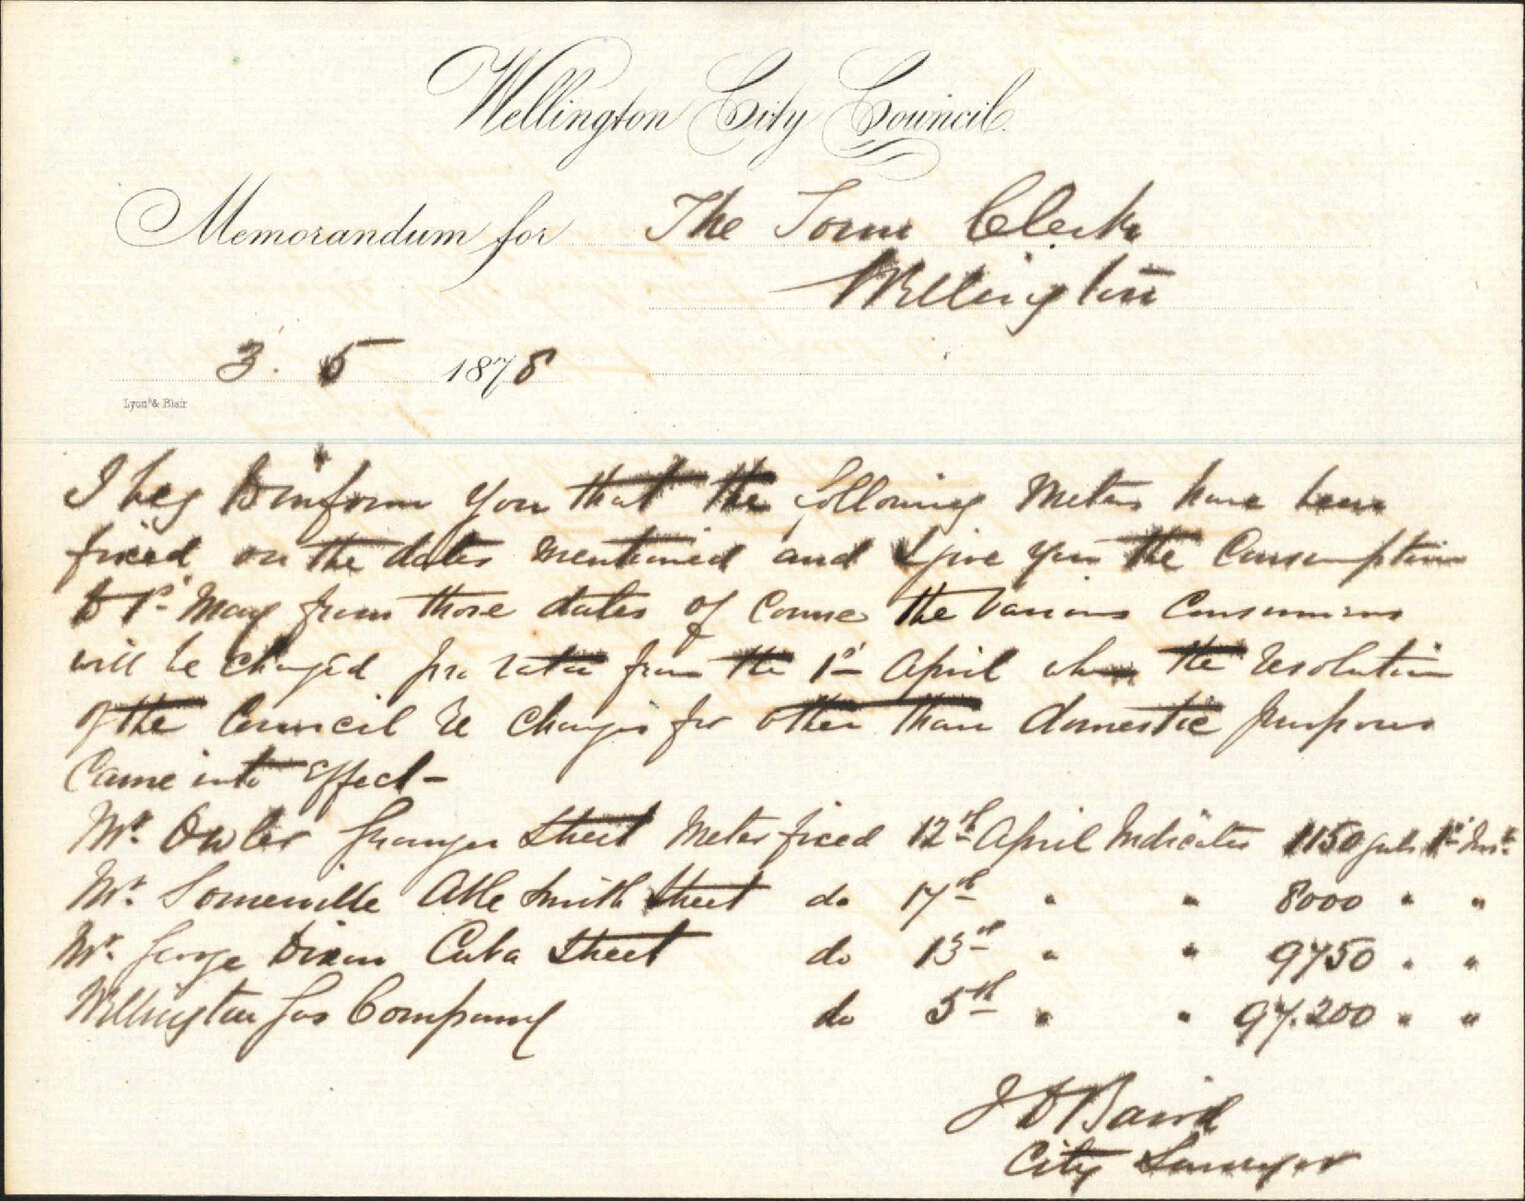 Wellington City Council.
Memorandum for The Town Clerk
Wellington
3. 5 1878
Lyon & Blair
I beg to inform you that the following Meters have been
fixed on the dates mentioned and I give you the Consumption
to 1st May from those dates of Course the Various Consumers
will be Charged pro rata from the 1st April when the resolution
of the Council re Charges for other than domestic purposes
Came into Effect -
Mr. Street Meter fixed 12th April Indicates 1150 galls 1st Inst.
Mr. Somerville Able Smith Street do 17th " " 8000 " "
Mr. George Dixon Cuba Street do 13th " " 9750 " "
Wellington Gas Company do 5th " " 97.200 " "
J D Baird
City Surveyor